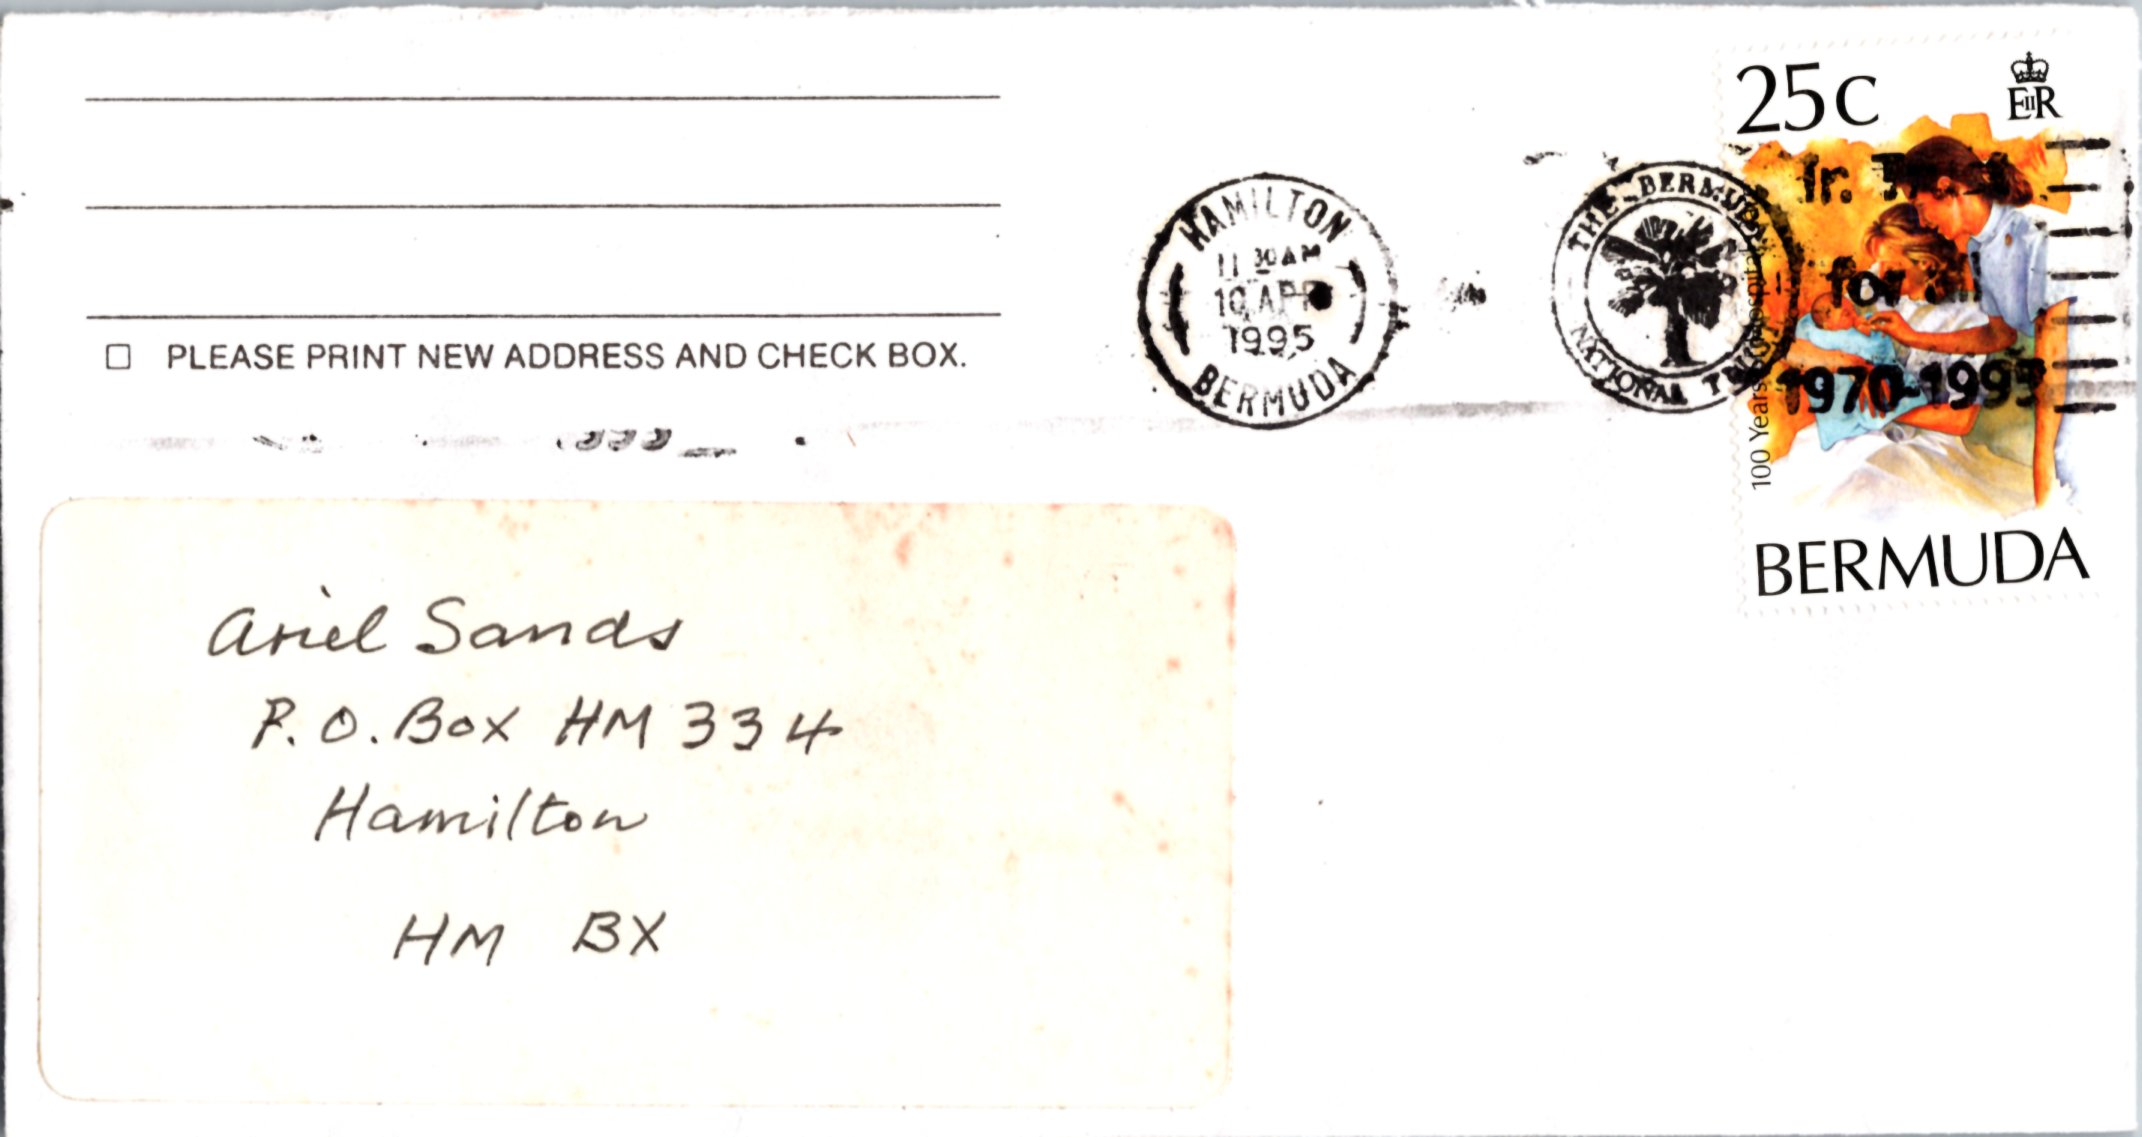 25c
EIIR
HAMILTON
11 30AM
10 APR
1995
BERMUDA
THE BERMUDA
NATIONAL
for all
1970-1995
100 Years
BERMUDA
☐ PLEASE PRINT NEW ADDRESS AND CHECK BOX.
Ariel Sands
P.O. Box HM 334
Hamilton
HM BX